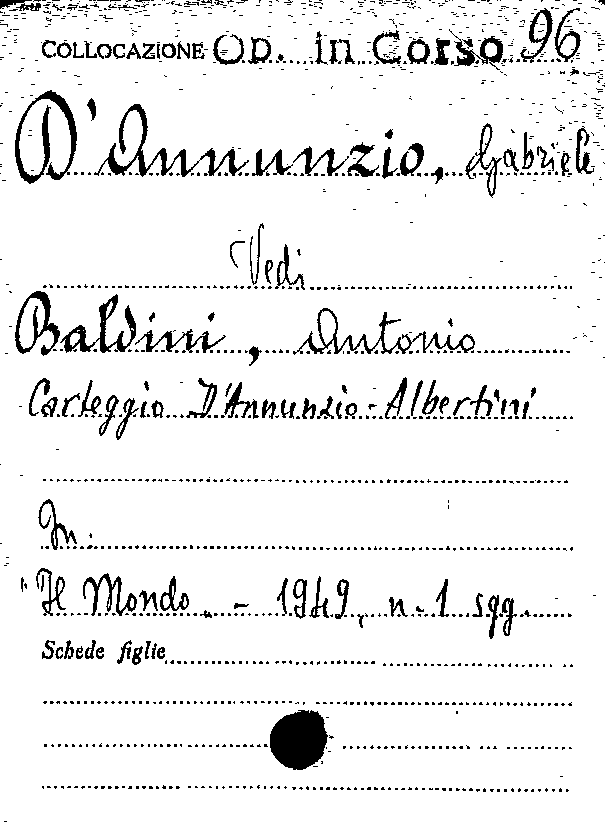 COLLOCAZIONE Op. in Corso 96
D'Annunzio, Gabriele
Vedi
Baldini, Antonio
Carteggio D'Annunzio-Albertini
In:
"Il Mondo„ - 1949, n. 1 sgg.
Schede figlie